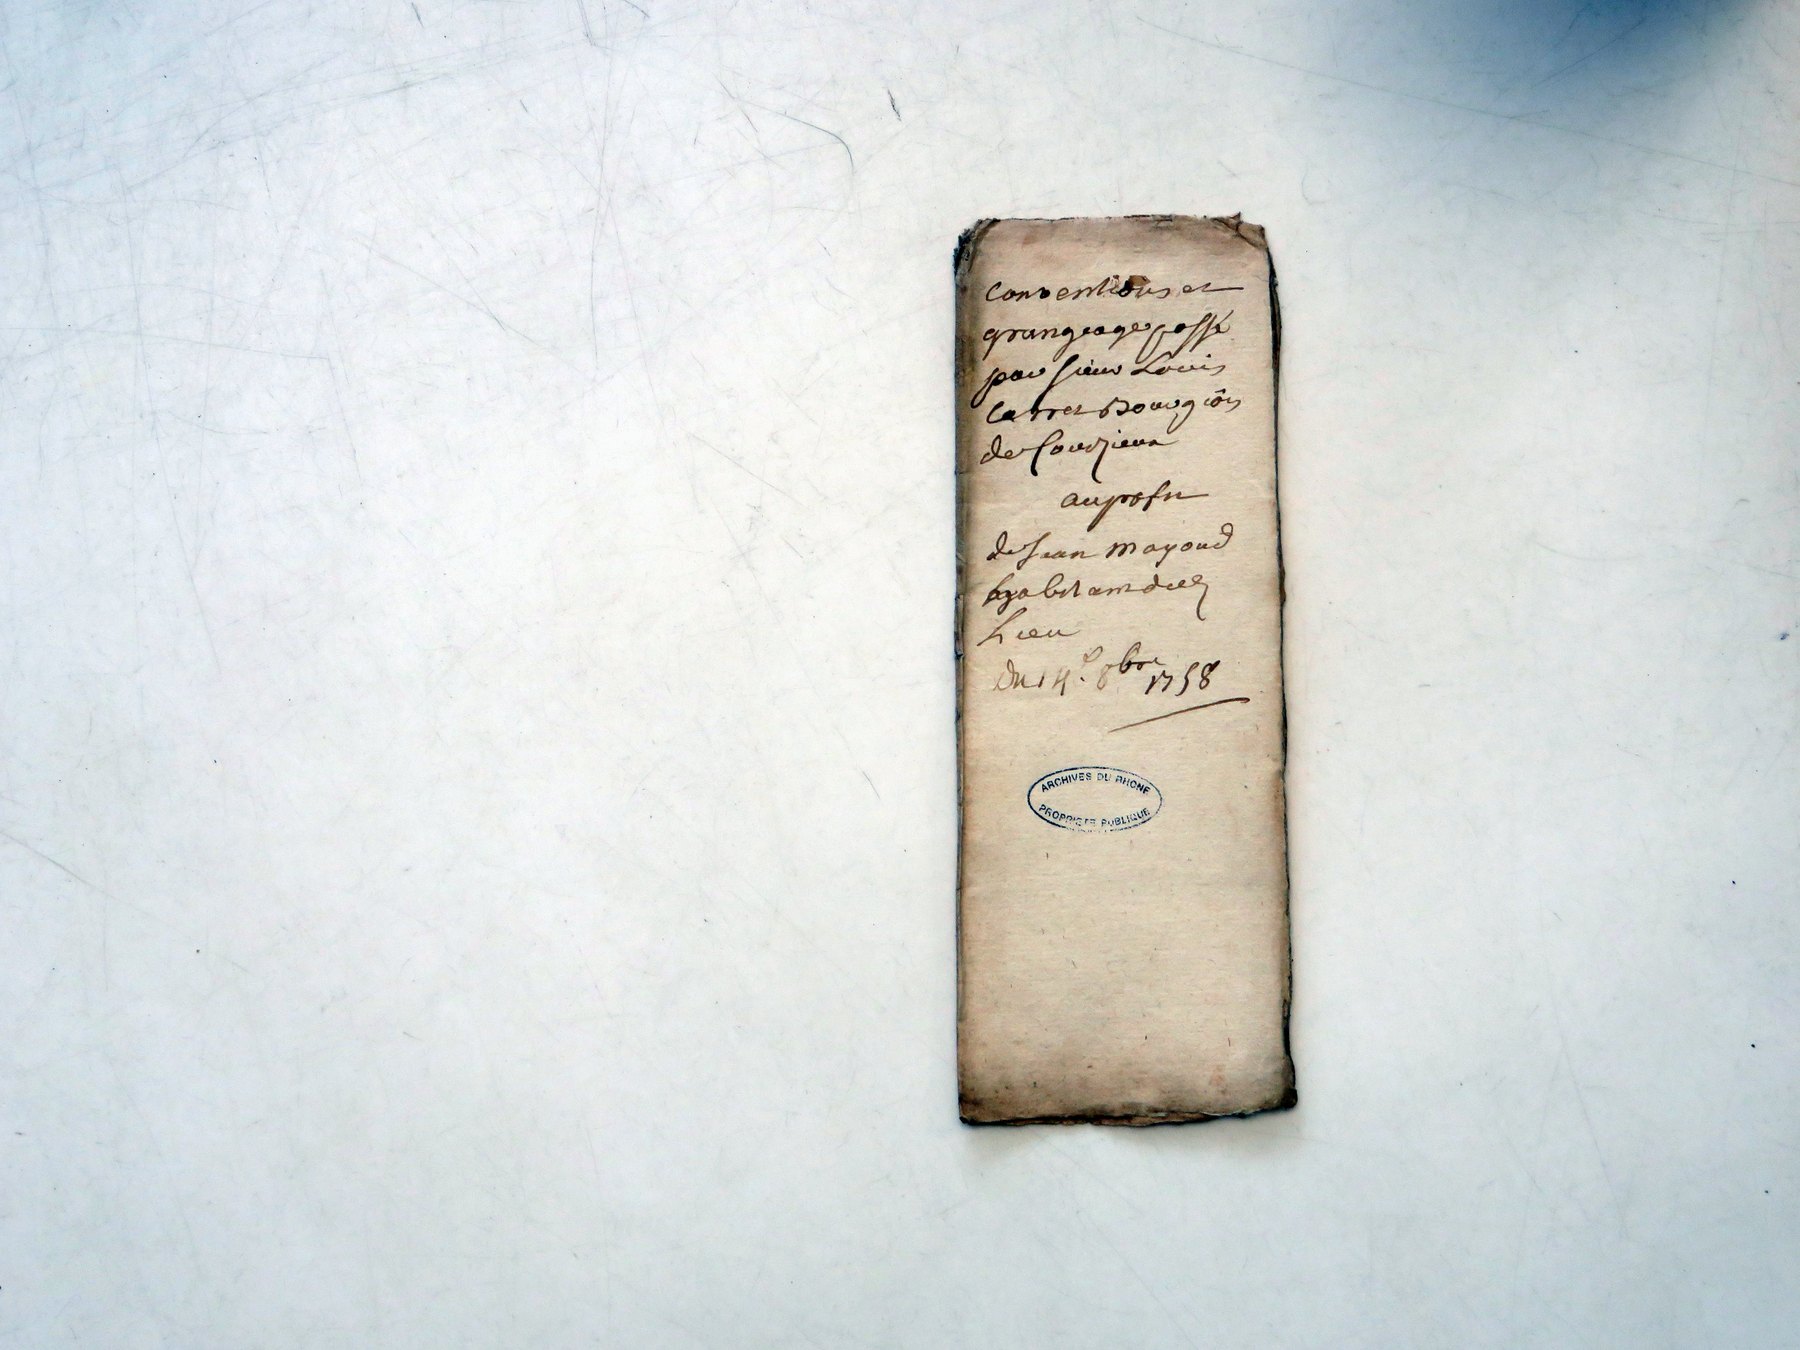 conventions et
grangeage passé
par sieur Louis
Carret Bourgeois
de Courzieux
au profit
de Jean mayoud
hyabitant dud
Lieu
Du 14e. 8bre 1758
ARCHIVES DU RHONE
PROPRIETE PUBLIQUE